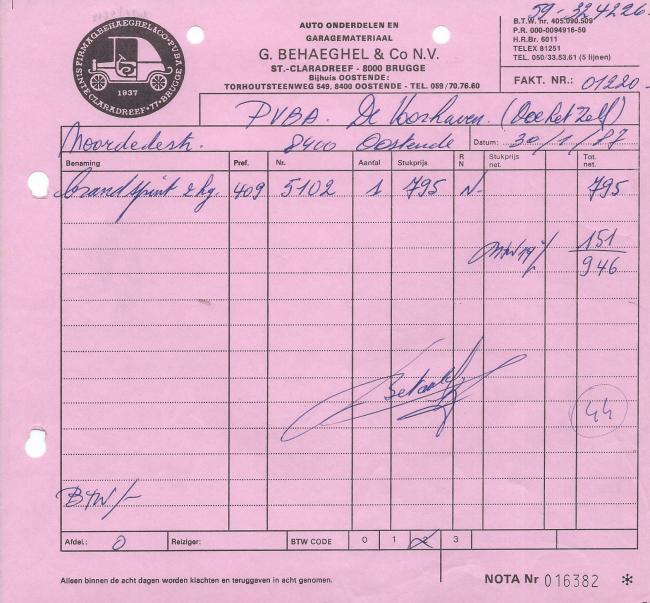 59-324226.
FIRMA G. BEHAEGHEL & Co • PVBA BRUGGE
1937
AUTO ONDERDELEN EN
GARAGEMATERIAAL
G. BEHAEGHEL & Co N.V.
ST.-CLARADREEF - 8000 BRUGGE
Bijhuis OOSTENDE:
TORHOUTSTEENWEG 549, 8400 OOSTENDE - TEL. 059/70.76.60
B.T.W. nr. 405.090.509
P.R. 000-0094916-50
H.R.Br. 6011
TELEX 81251
TEL. 050/33.53.61 (5 lijnen)
FAKT. NR.: 01220
PVBA. De Voorhaven. (Doe het Zelf)
8400 Oostende Datum: 30/1/87
Benaming Pref. Nr. Aantal Stukprijs R N Stukprijs net. Tot. net.
2 kg. 409 5102 1 795 N- 795
BTW 19% 151
946
Betaald
44
BTW/-
Afdel.: 0 Reiziger: BTW CODE 0 1 2 3
Alleen binnen de acht dagen worden klachten en teruggaven in acht genomen.
NOTA Nr 016382 *